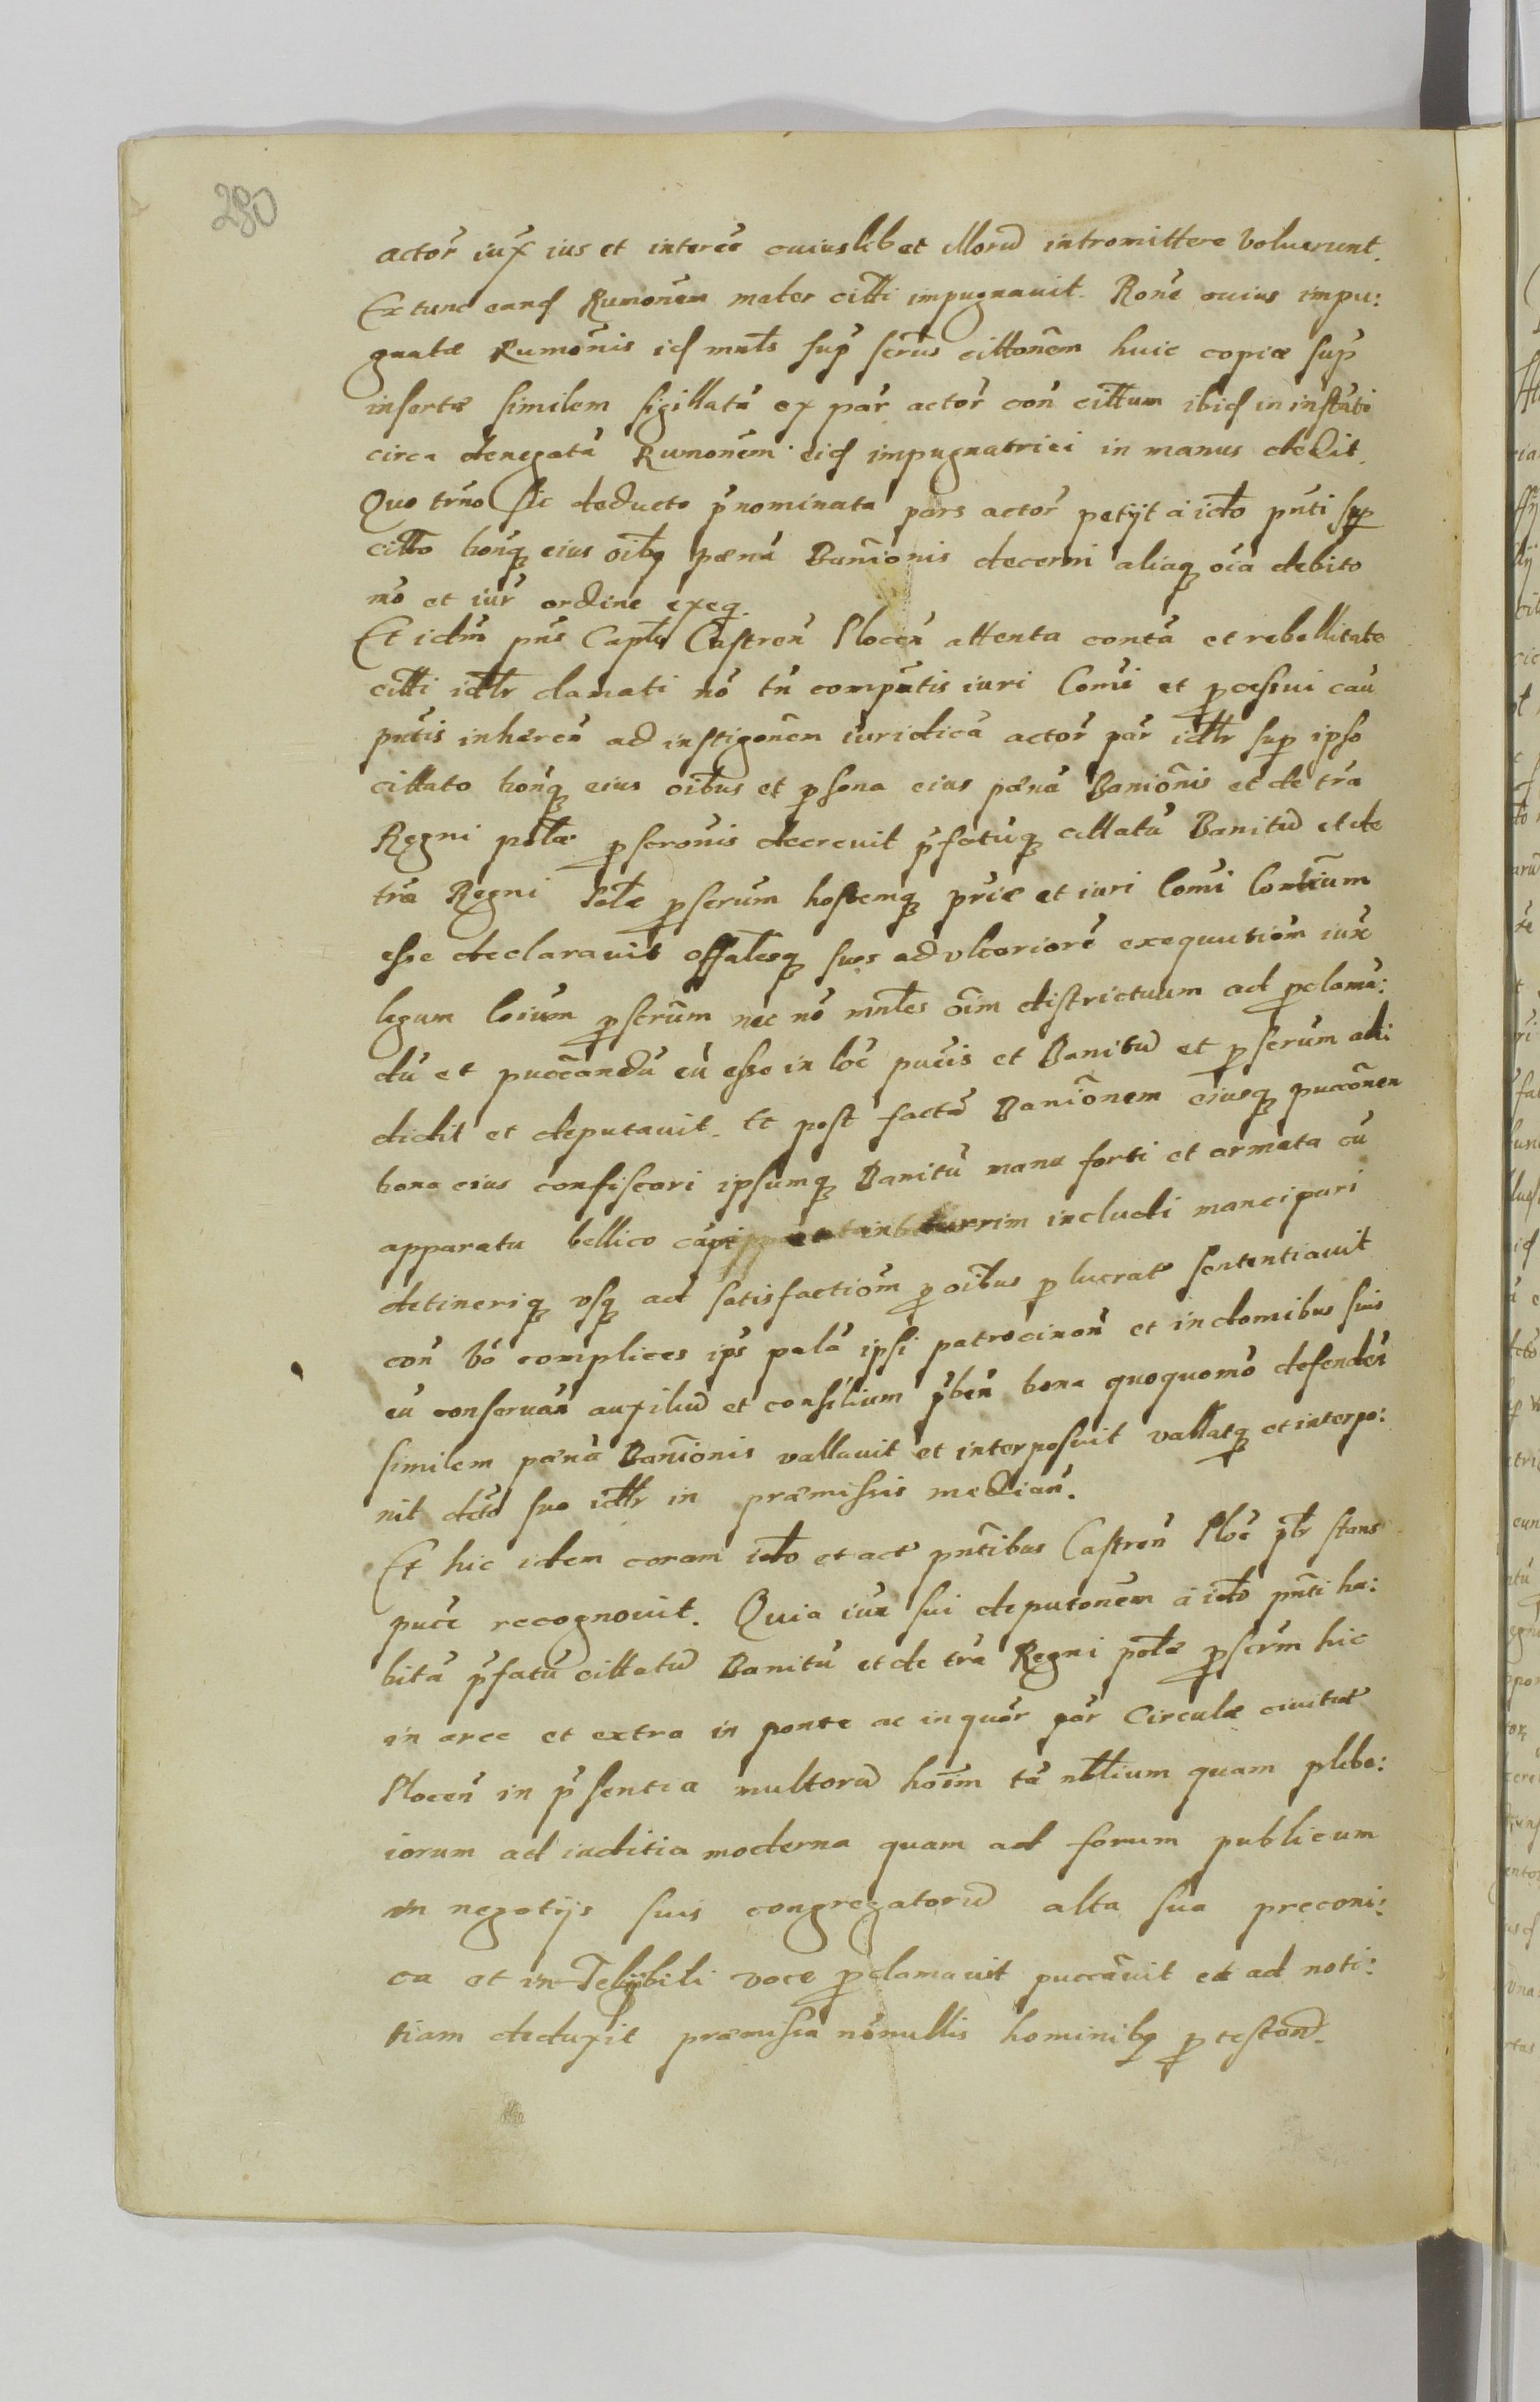 280
actor̃ iux̃ ius et interẽe cuiuslibet illorũ intromittere voluerunt.
Ex tunc eand Rumonẽm mater citti impugnauit. Ronẽ cuius impu:
gnatæ Rumonĩs id mnlĩs sup̃ scrũs cittonẽm huic copiæ sup̃
insertæ similem sigillatã ex par̃ actor̃ con̄ cittum ibid in instãti
circa denegatã Rumonẽm eid impugnatrici in manus dedit.
Quo trño sic deducto p̃nominata pars actor̃ petijt à icto pñti sup
citto bonq̃ eius oibq̃ pœnã Banĩonis decerni aliaq̃ oĩa debito
mõ et iur̃ ordine exeq.
Et idm̃ pñs Capts Castren̄ Plocen̄ attenta contã et rebellitate
citti idtr clamati nõ tñ compñtis iuri Comũi et pcessui cau
pñtis inhæren̄ ad instigonẽm iuridicã actor̃ par̃ idtr sup ipso
cittato bonq̃ eius oibus et psona eius pœnã Baniõnis et de trã
Regni polæ pscronĩs decreuit p̃fatũq̃ cittatũ Banitũ et de
trã Regni Polæ pscrum hostemq̃ prĩæ et iuri Comũi Contrĩum
esse declarauit offalesq̃ suos ad vlteriorẽ exequutiõm iuxt
legum Coĩum pscrũm nec nõ mnles oĩm districtuum ad pclamã:
dũ et puccandũ eũ esse in loc̃ pucĩs et Banitũ et pscrum addi
didit et deputauit. Et post factã Baniõnem eiusq̃ puccõnem
bona eius confiscari ipsumq̃ Banitũ manu forti et armata cũ
apparatu bellico capi turrim includi mancipari
detineriq̃ vsq̃ ad satisfactiõm p oibus p lucrat sententiauit
con̄ võ complices ips̃ palã ipsi patrocinan̄ et in domibus suis
eũ conseruan̄ auxiliũ et consilium p̃ben̄ bona quoquomõ defenden̄
similem pœnã Banĩonis vallauit et interposuit vallatq̃ et interpo:
nit dcto suo idtr in præmissis median̄.
Et hic idem coram icto et act̃ pñtibus Castren̄ Ploc̃ ptr stans
pucẽ recognouit. Quia iux̃ sui deputonẽm à icto pñti ha:
bitã p̃fatũ cittatũ Banitũ et de trã Regni polæ pscrm̃ hic
in arce et extra in ponte ac in quõr par̃ Circulæ ciuitat̃
Plocen̄ in p̃sentia multorũ hoĩm tã nblium quam plebe:
iorum ad iuditia moderna quam ad forum publicum
in negotijs suis congregatorũ alta sua preconi:
ca et in-Teligibili voce pclamauit puccãuit et ad noti:
tiam deduxit præmissa nõnullis hominibq ptestand.